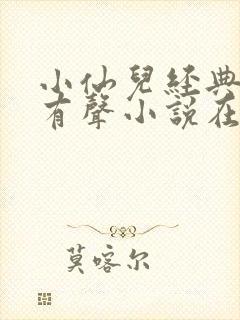 小仙兒經典
有聲小説在
莫喀尔